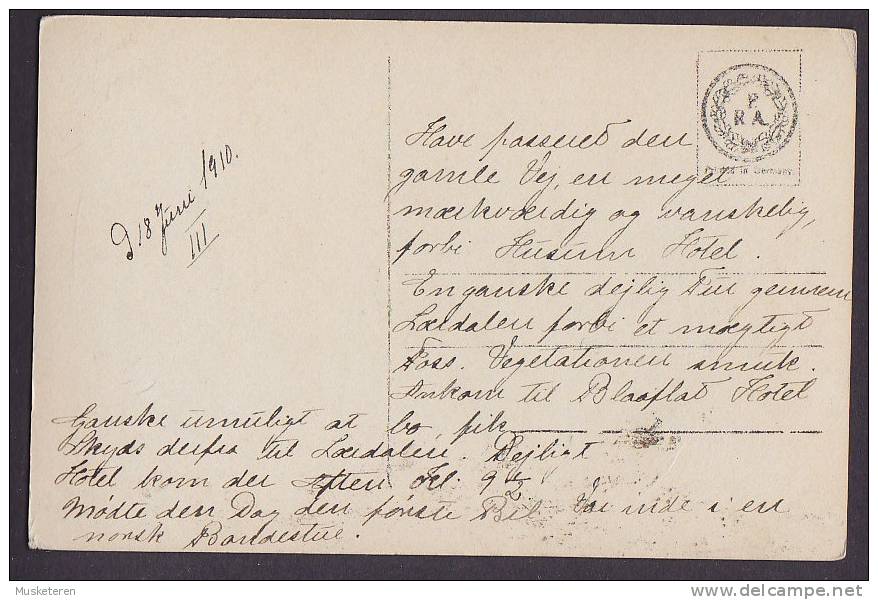 d 18 Juni 1910.
III
P.
R A.
Printed in Germany
Have passeret den
gamle Vej, en meget
mærkværdig og vanskelig,
forbi Husum Hotel.
En ganske dejlig Tur gennem
Lærdalen forbi et mægtigt
Foss. Vegetationen smuk.
Ankom til Blaaflat Hotel
Ganske umuligt at bo fik
Skyds derfra til Lærdalen. Dejligt
Hotel kom der Aften Kl. 9½.
Mødte den Dag den første Bil Var inde i en
norsk Bondestue.
Musketeren
delcampe.net